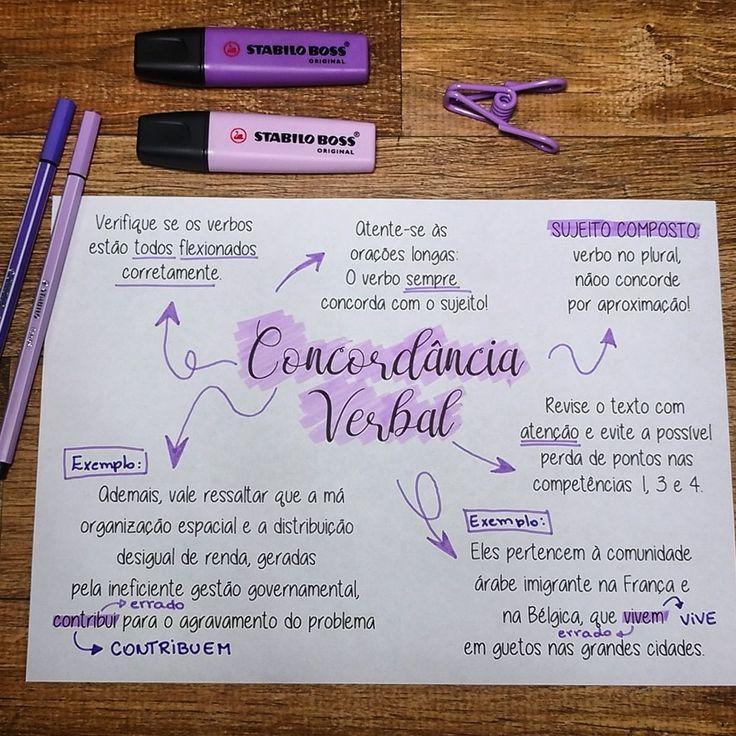 STABILO BOSS®
ORIGINAL
STABILO BOSS®
ORIGINAL
Verifique se os verbos
estão todos flexionados
corretamente.
Atente-se às
orações longas:
O verbo sempre
concorda com o sujeito!
SUJEITO COMPOSTO:
verbo no plural,
nãoo concorde
por aproximação!
Concordância
Verbal
Revise o texto com
atenção e evite a possível
perda de pontos nas
competências 1, 3 e 4.
Exemplo:
Ademais, vale ressaltar que a má
organização espacial e a distribuição
desigual de renda, geradas
pela ineficiente gestão governamental,
errado
contribui para o agravamento do problema
CONTRIBUEM
Exemplo:
Eles pertencem à comunidade
árabe imigrante na França e
na Bélgica, que vivem VIVE
errado
em guetos nas grandes cidades.